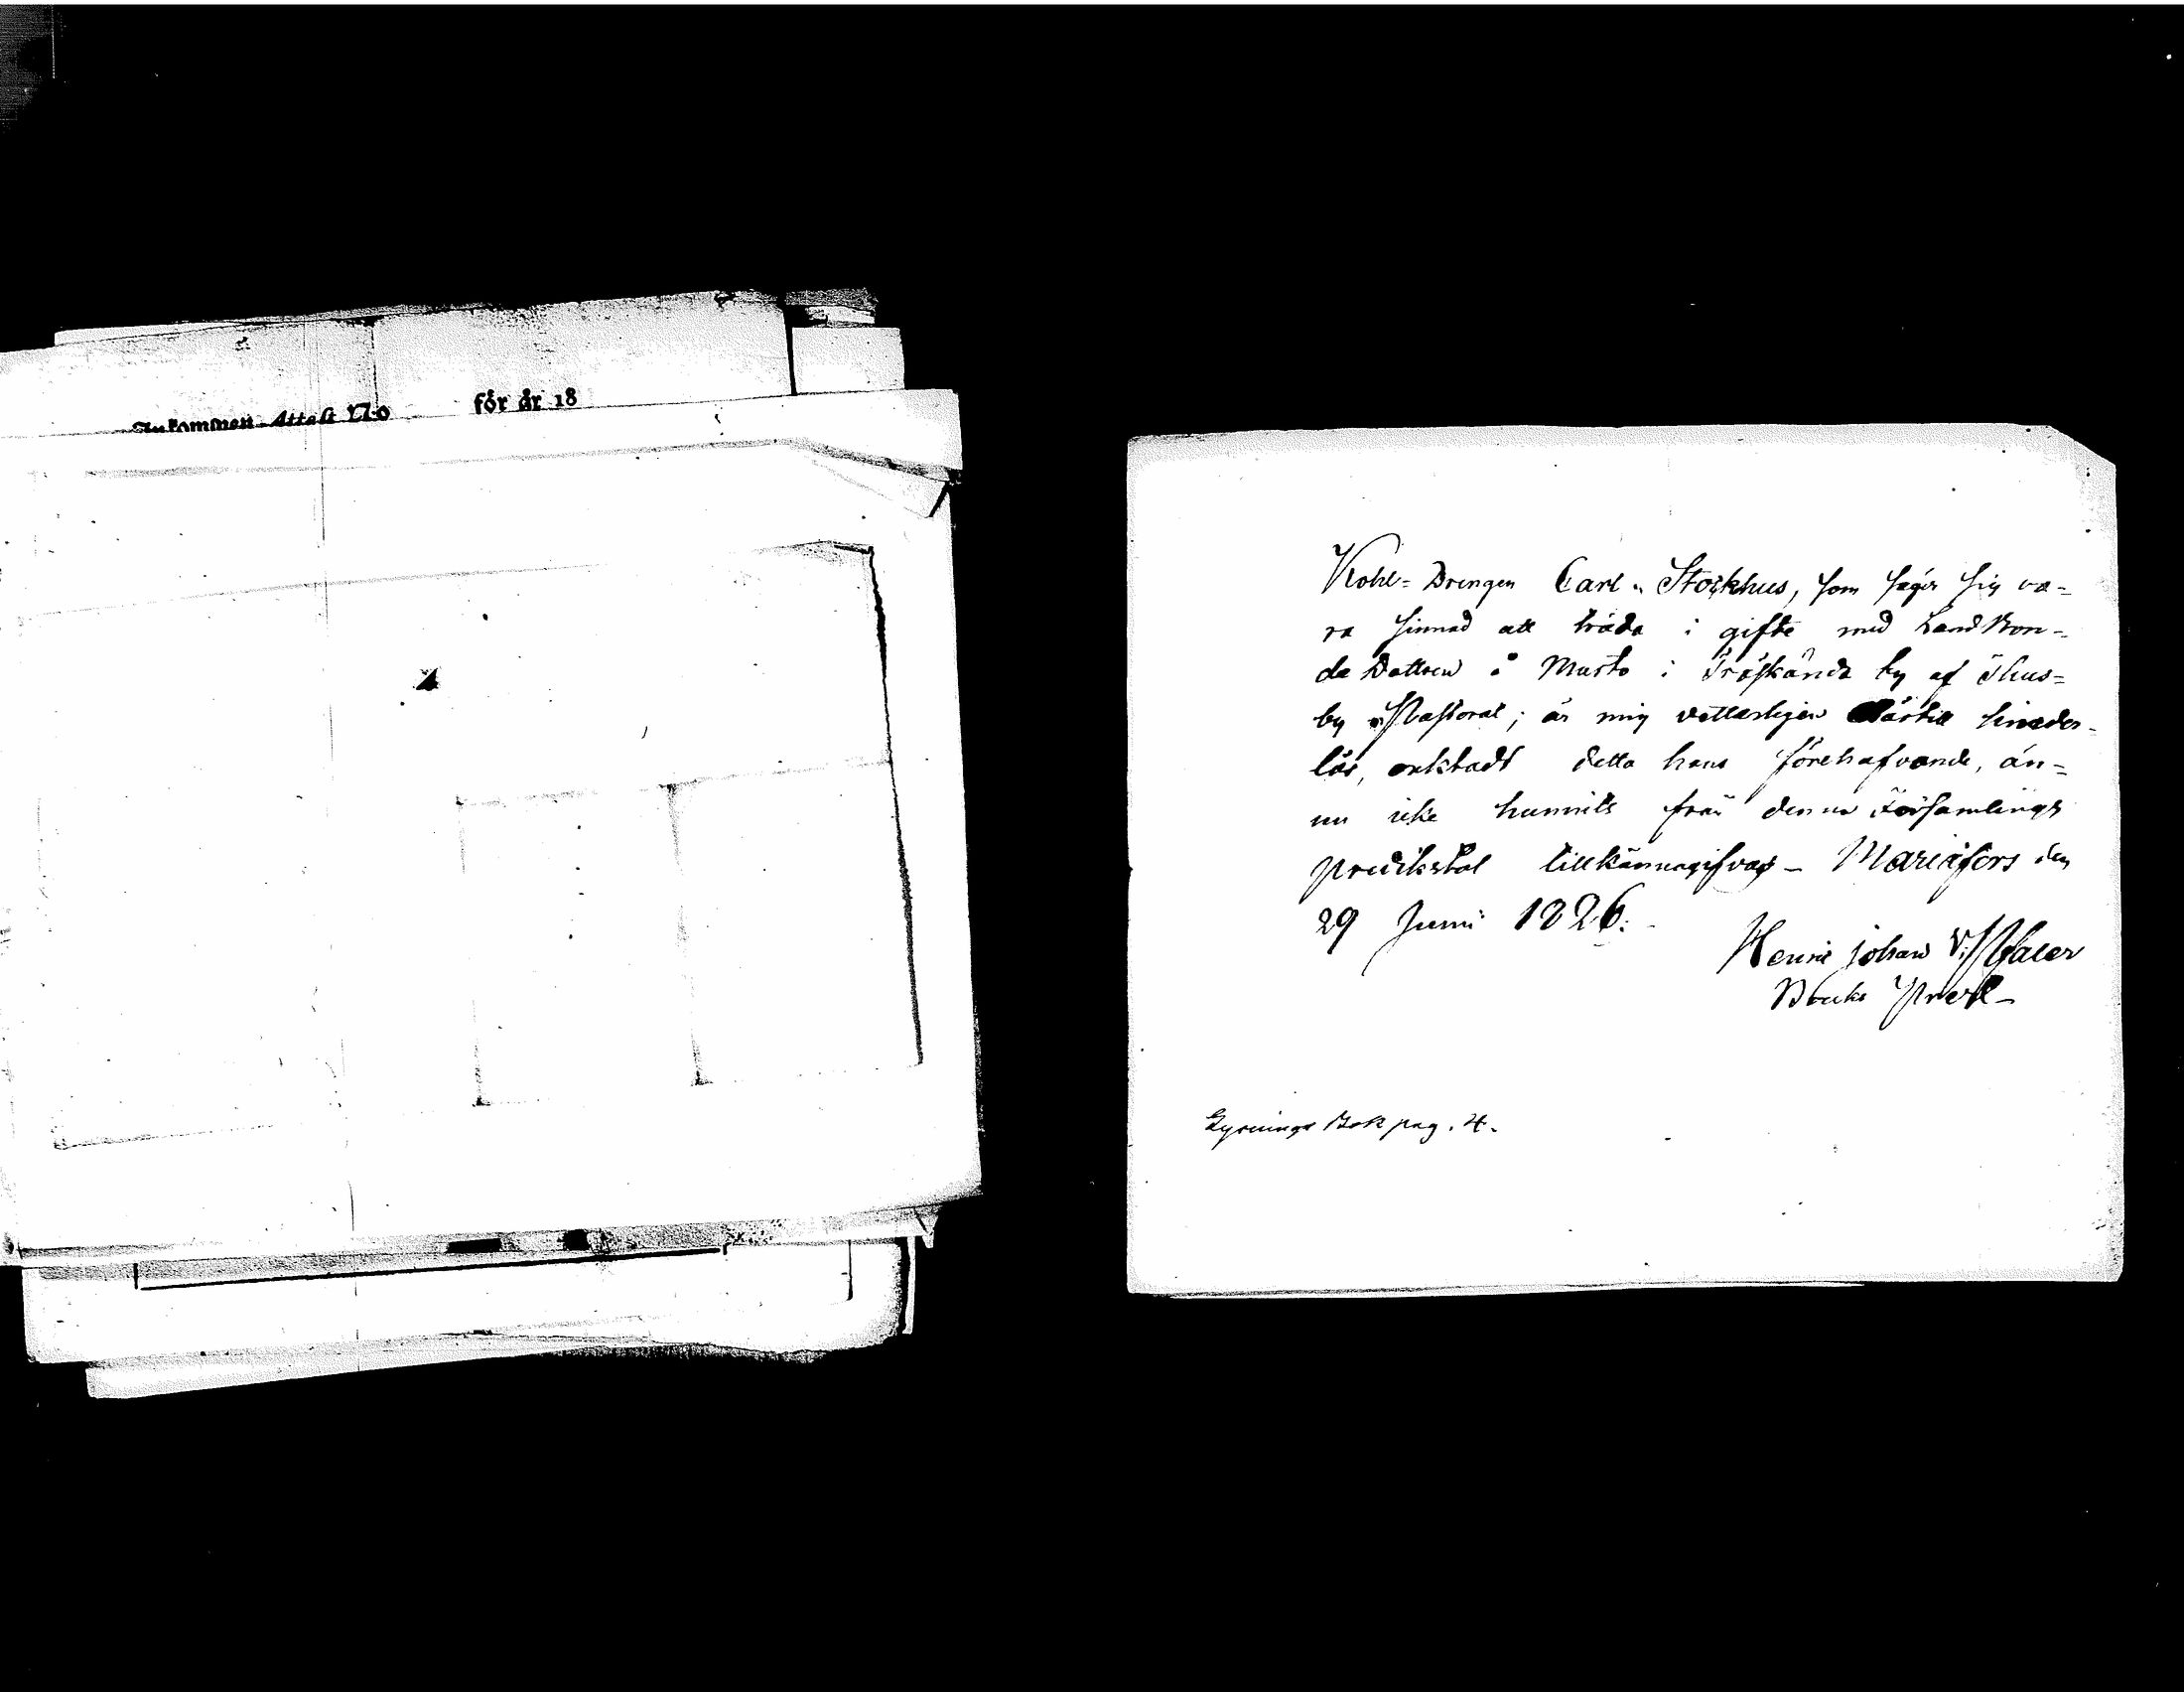 Inkommen Attest No för år 18
Kohl= Drengen Carl Stockhus, som säger sig va=
ra sinnad att träda i gifte med Land Bon=
de Dottren å Marto i Träskända by af Thus=
by Pastorat; är mig vetterligen därtill hinder-
lös, enkhadt detta hans förehafvande, än=
nu icke hunnits från denna Församlings
predikstol tillkännagifvas – Mariæfors den
29 Junii 1826.
Henric Johan V.
Bruks Pred.
Lysnings Bok pag. 4.